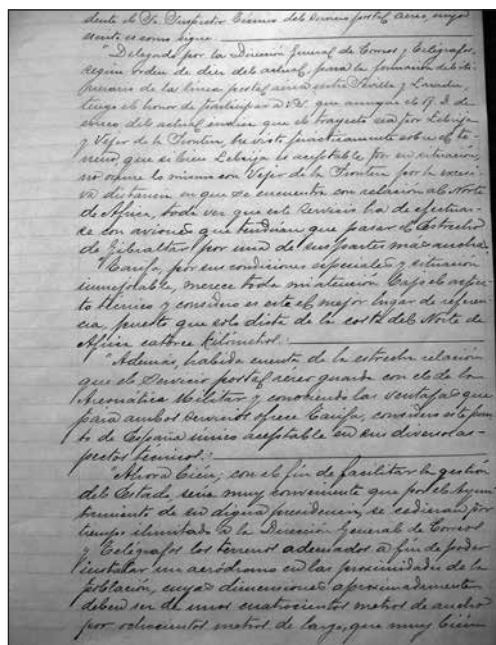 dente el Sr. Inspector Técnico del servicio postal aéreo, cuyo
escrito es como sigue:
"Delegado por la Dirección General de Correos y Telégrafos,
según orden de diez del actual, para la formación del iti-
nerario de la línea postal aérea entre Sevilla y Larache,
tengo el honor de participar a V.E. que aunque el R. D. de
cinco del actual indica que el trayecto sea por Lebrija
y Vejer de la Frontera, he visto prácticamente sobre el te-
rreno, que si bien Lebrija es aceptable por su situación,
no ocurre lo mismo con Vejer de la Frontera por la excesi-
va distancia en que se encuentra con relación al Norte
de Africa, toda vez que este servicio ha de efectuar-
se con aviones que tendrían que pasar el Estrecho
de Gibraltar por una de sus partes mas anchas.
"Tarifa, por sus condiciones especiales y situación
inmejorable, merece toda mi atención bajo el aspec-
to técnico y considero es este el mejor lugar de referen-
cia, puesto que solo dista de la costa del Norte de
Africa catorce kilómetros.
"Además, habida cuenta de la estrecha relación
que el Servicio postal aéreo guarda con el de la
Aeronáutica Militar y conociendo las ventajas que
para ambos servicios ofrece Tarifa, considero este pun-
to de España único aceptable en sus diversos as-
pectos técnicos.
"Ahora bien; con el fin de facilitar la gestión
del Estado, sería muy conveniente que por el Ayun-
tamiento de su digna presidencia, se cedieran por
tiempo ilimitado a la Dirección General de Correos
y Telégrafos los terrenos adecuados a fin de poder
instalar un aeródromo en las proximidades de la
población, cuyas dimensiones aproximadamente
deben ser de unos cuatrocientos metros de ancho
por ochocientos metros de largo, que muy bien